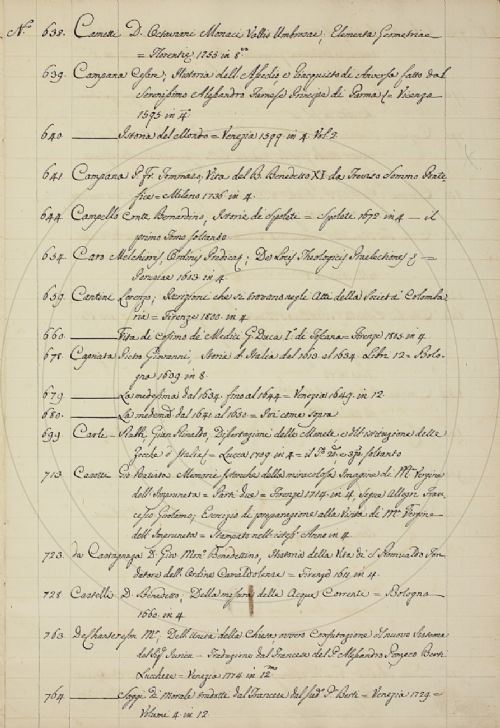 N.º 638. Camotti D. Octaviani Monaci Vallis Umbrosae; Elementa Geometriae
= Florentiae 1755 in 8.
639. Campana Cesare; Historia dell'Assedio e Racquisto di Anversa fatto dal
Serenissimo Alessandro Farnese Principe di Parma &. = Vicenza
1595 in 4.
640. ——— Istoria del Mondo = Venezia 1599 in 4. Vol. 2
641 Campana P. Fr. Tommaso; Vita del B. Benedetto XI. da Treviso Sommo Ponte
fice = Milano 1736 in 4.
644. Campello Conte Bernardino; Istorie di Spoleto = Spoleto 1672 in 4 — il
primo Tomo soltanto
654. Caro Melchioris, Ordinis Praedicat; De Locis Theologicis Praelectiones &. =
1603 in 4.
659. Cantini Lorenzo; Iscrizioni che si trovano negli Atti della Società Colomba
ria = Firenze 1800. in 4.
660. ——— Vita di Cosimo de' Medici G. Duca I.º di Toscana = Firenze 1805 in 4.
678. Capriata Pietro Giovanni, Storia d'Italia dal 1613 al 1634. Libri 12 = Bolo-
gna 1639 in 8.
679. ——— La medesima dal 1634 fino al 1644 = Venezia 1649. in 12
680. ——— La medema dal 1641 al 1650 = Ivi come sopra
699. Carli Gian Rinaldo, Dissertazioni delle Monete e dell'istituzione delle
Zecche d'Italia = Lucca in 4 = il soltanto
713. Casotti Gio Batista Memorie Istoriche della miracolosa Imagine di M.ª Vergine
dell'Impruneta = Parti Due = Firenze 1714 in 4, Segue Allegri Fran-
cesco Gaetano; Esercizio di preparazione alla Venuta di M.ª Vergine
dell'Impruneta = Stampato nell'istess'Anno in 4
723. da Castagnizza D. Gio Benedettino, Historia della Vita di S. Romualdo Fon-
datore dell'Ordine Camaldolense = Firenze 1611 in 4.
728 Castelli D. Benedetto; Della misura delle Acque Correnti = Bologna
1660. in 4.
763. Deschanteresm Mr, Dell'Unità della Chiesa, ovvero Confutazione del nuovo Sistema
del Sig.r Jurieu = Traduzione dal Francese del P. Alessandro Pompeo Berti
Lucchese = Venezia 1774 in 12
764. ——— Saggi di Morale tradotti dal Francese dal sud.º P. Berti = Venezia 1729 =
Volumi 4 in 12